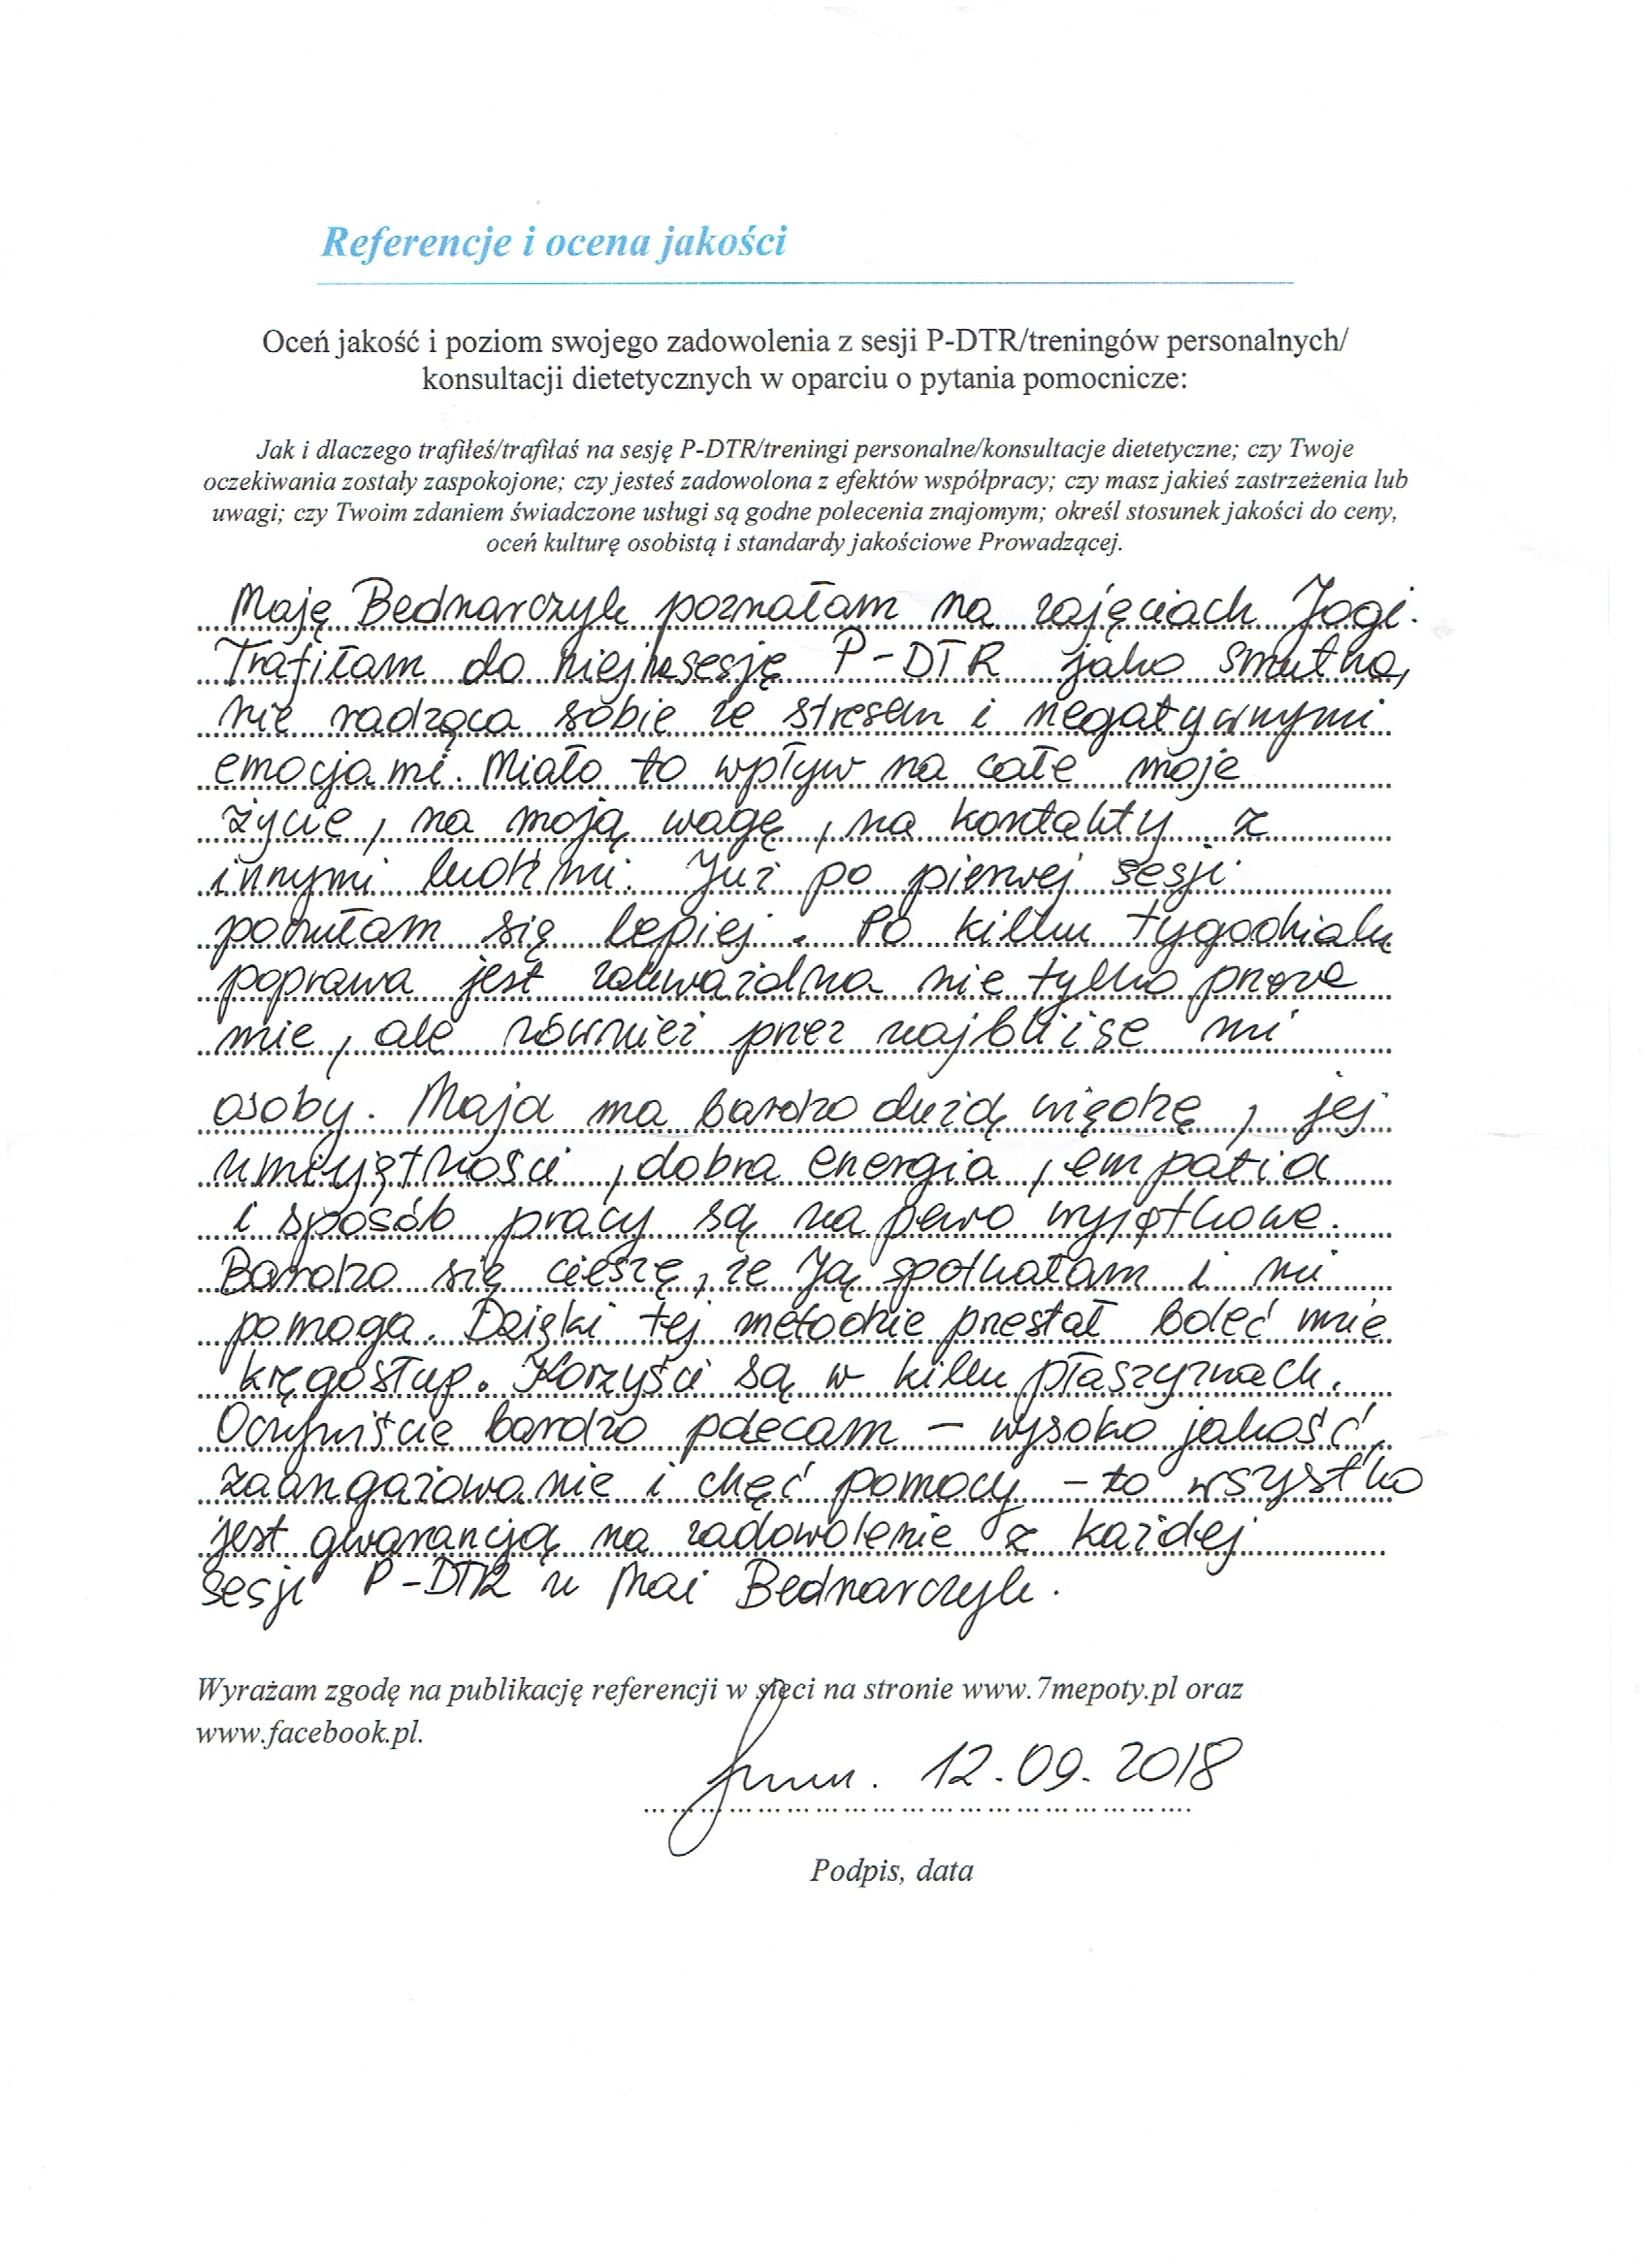 Referencje i ocena jakości
Oceń jakość i poziom swojego zadowolenia z sesji P-DTR/treningów personalnych/
konsultacji dietetycznych w oparciu o pytania pomocnicze:
Jak i dlaczego trafiłeś/trafiłaś na sesję P-DTR/treningi personalne/konsultacje dietetyczne; czy Twoje
oczekiwania zostały zaspokojone; czy jesteś zadowolona z efektów współpracy; czy masz jakieś zastrzeżenia lub
uwagi; czy Twoim zdaniem świadczone usługi są godne polecenia znajomym; określ stosunek jakości do ceny,
oceń kulturę osobistą i standardy jakościowe Prowadzącej.
Maję Bednarczyk poznałam na zajęciach Jogi.
Trafiłam do niej na sesję P-DTR jako smutna,
nie radząca sobie ze stresem i negatywnymi
emocjami. Miało to wpływ na całe moje
życie, na moją wagę, na kontakty z
innymi ludźmi. Już po pierwej sesji
poczułam się lepiej. Po kilku tygodniach
poprawa jest zauważalna nie tylko przeze
mnie, ale również przez najbliższe mi
osoby. Maja ma bardzo dużą wiedzę, jej
umiejętności, dobra energia, empatia
i sposób pracy są na pewno wyjątkowe.
Bardzo się cieszę, że Ją spotkałam i mi
pomoga. Dzięki tej metodzie przestał boleć mnie
kręgosłup. Korzyści są w kilku płaszczyznach.
Oczywiście bardzo polecam – wysoka jakość,
zaangażowanie i chęć pomocy – to wszystko
jest gwarancją na zadowolenie z każdej
sesji P-DTR u Mai Bednarczyk.
Wyrażam zgodę na publikację referencji w sieci na stronie www.7mepoty.pl oraz
www.facebook.pl.
12.09.2018
Podpis, data